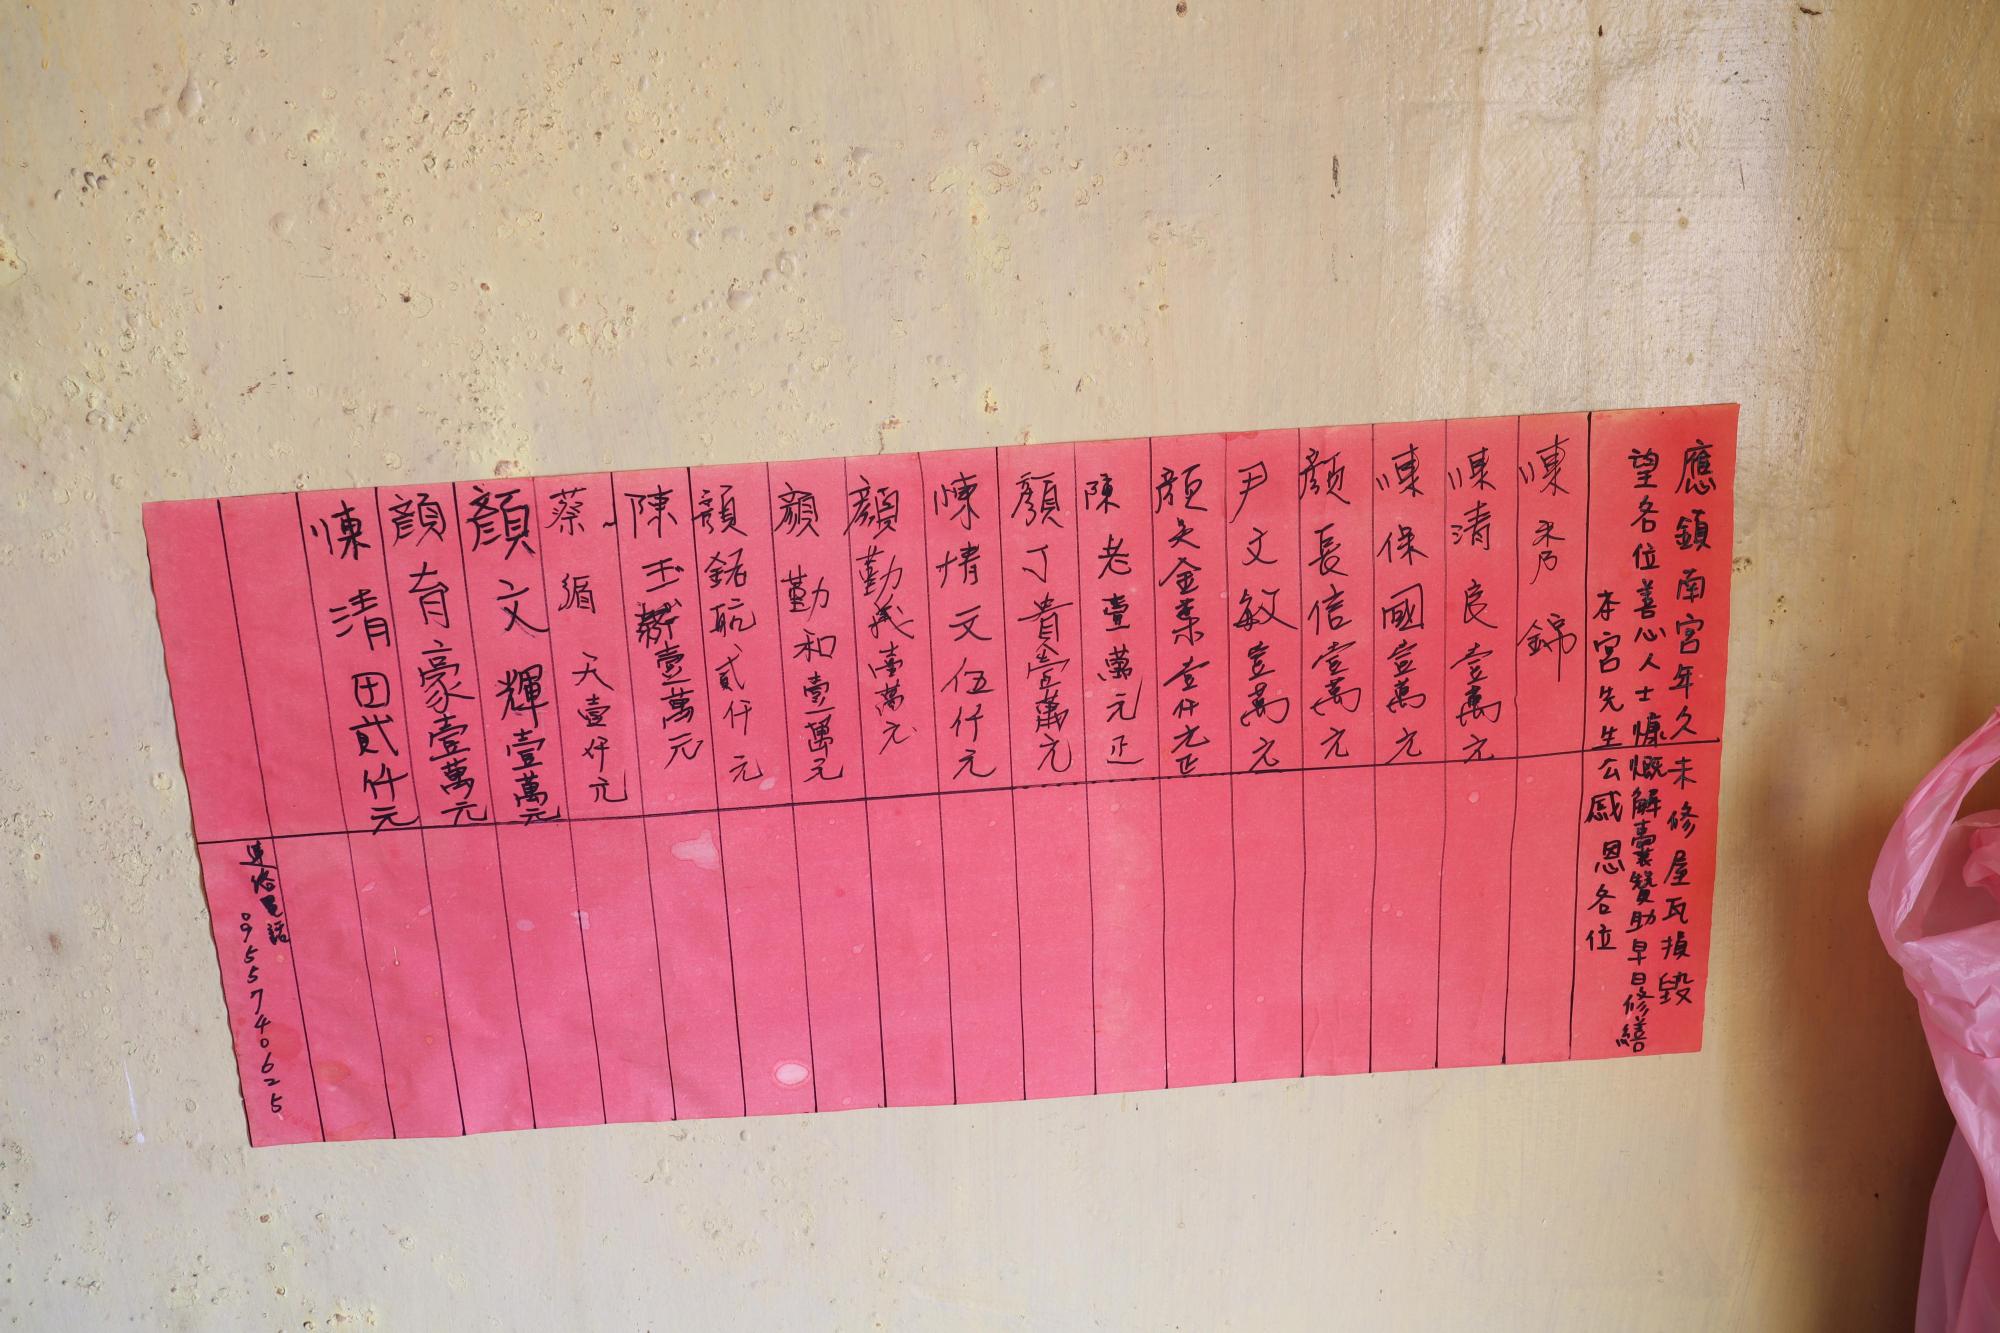 應鎮南宮年久未修屋瓦損毀
望各位善心人士慷慨解囊贊助早日修繕
本宮先生公感恩各位
陳秀錦
陳清良壹萬元
陳保國壹萬元
顏長信壹萬元
尹文敏壹萬元
顏吳金葉壹仟元正
陳老壹萬元正
顏丁貴壹萬元
陳情文伍仟元
顏勤義壹萬元
顏勤和壹萬元
顏銘航貳仟元
陳玉 壹萬元
蔡循天壹仟元
顏文輝壹萬元
顏育豪壹萬元
陳清田貳仟元
連絡電話
0955740625